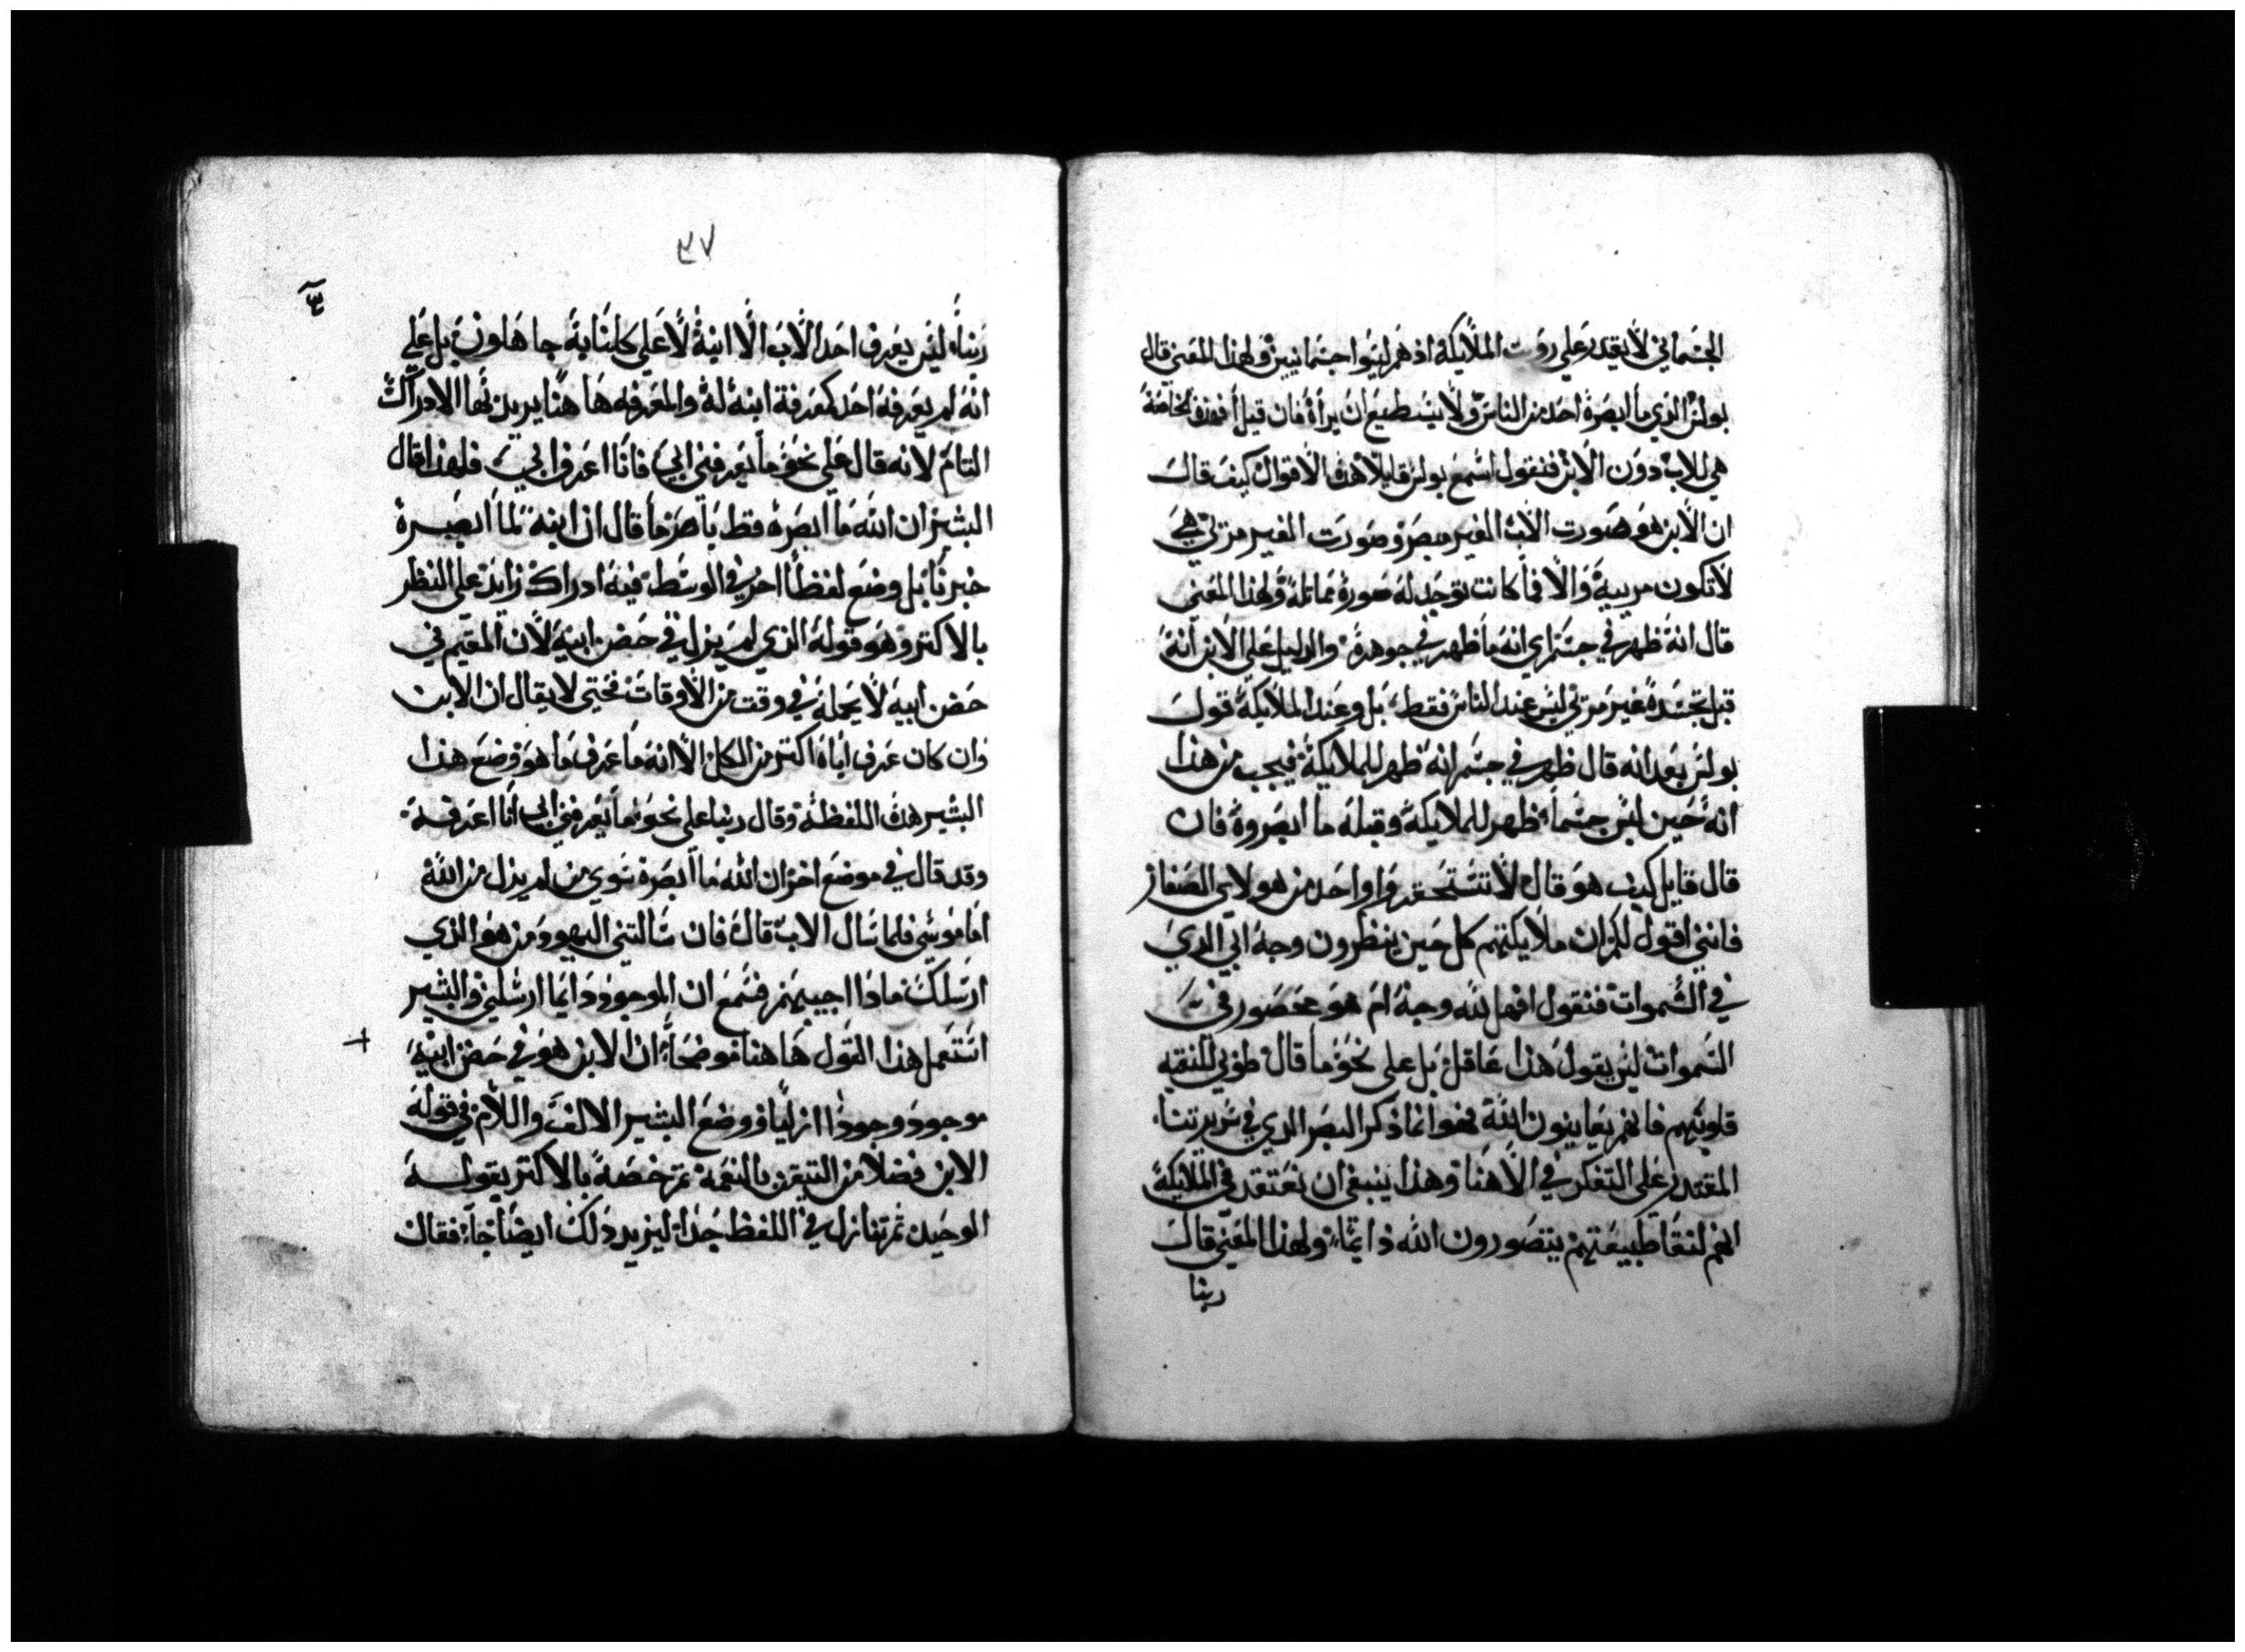 الجسماني لا يقدر علي روت الملايكة اذ هم ليسوا جسمانيين ولهذا المعني قال
بولس الذي ما ابصره احد من الناس ولا يستطيع ان يراه فان قيل افهذه الخاصة
هي للاب دون الابن فنقول اسمع بولس قايلا هذه الاقوال كيف قال
ان الابن هو صورت الاب الغير مبصر وصورت الغير مرئي هي
لا تكون مرييه والا فما كانت توجد له صورة مماتلة ولهذا المعني
قال انه ظهر في جسم اي انه ما ظهر في جوهره والدليل علي الابن انه
قبل تجسده غير مرئي ليس عند الناس فقط بل وعند الملايكة قول
بولس بعد انه قال ظهر في جسم انه ظهر للملايكة فيجب من هذا
انه حين لبس جسما ظهر للملايكة وقبله ما ابصروه فان
قال قايل كيف هو قال لا تستحقروا واحد من هولاي الصغار
فانني اقول لكم ان ملايكتهم كل حين ينظرون وجه ابي الذي
في السموات فنقول افهل لله وجه ام هو محصور في
السموات ليس يقول هذا عاقل بل علي نحو ما قال طوبي للنقيه
قلوبهم فانهم يعاينون الله فهو انما ذكر البصر الذي في سريرتنا
المقتدر علي التفكر في الاهنا وهذا ينبغي ان نعتقد في الملايكة
انهم لنقا طبيعتهم يتصورون الله دايما ولهذا المعني قال
ربنا
٣٧
ربنا ليس يعرف احد الاب الا ابنه لا علي كلنا به جاهلون بل علي
انه لم يعرفه احد كمعرفة ابنه له والمعرفه هاهنا يريد بها الادراك
التام لانه قال علي نحو ما يعرفني ابي فانا اعرف ابي فلهذا قال
البشير ان الله ما ابصره قط باصر وما قال ان ابنه لما ابصره
خبرنا بل وضع لفظا اخر في الوسط فيه ادراك زايد علي النظر
بالاكتر وهو قوله الذي لم يزل في حضن ابيه لان المقيم في
حضن ابيه لا يجهله في وقت من الاوقات فحتي لا يقال ان الابن
وان كان عرف اباه اكتر من الكل الا انه ما عرف ما هو وضع هذا
البشير هذه اللفظة وقال ربنا علي نحو ما يعرفني ابي انا اعرفه
وقد قال في موضع اخر ان الله ما ابصره سوي من لم يزل من الله
اما موسي فلما سال الاب قال فان سالتني اليهود من هو الذي
ارسلك ماذا اجيبهم فسمع ان الموجود دايما ارسلني والبشير
استعمل هذا القول هاهنا موضحا ان الابن هو في حضن ابيه
موجود وجودا ازليا ووضع البشير الالف واللام في قوله
الابن فضلا من التبني بالنعمة تم خصه بالاكتر بقوله
الوحيد تم تنازل في اللفظ جدا ليزيد ذلك ايضاحا فقال